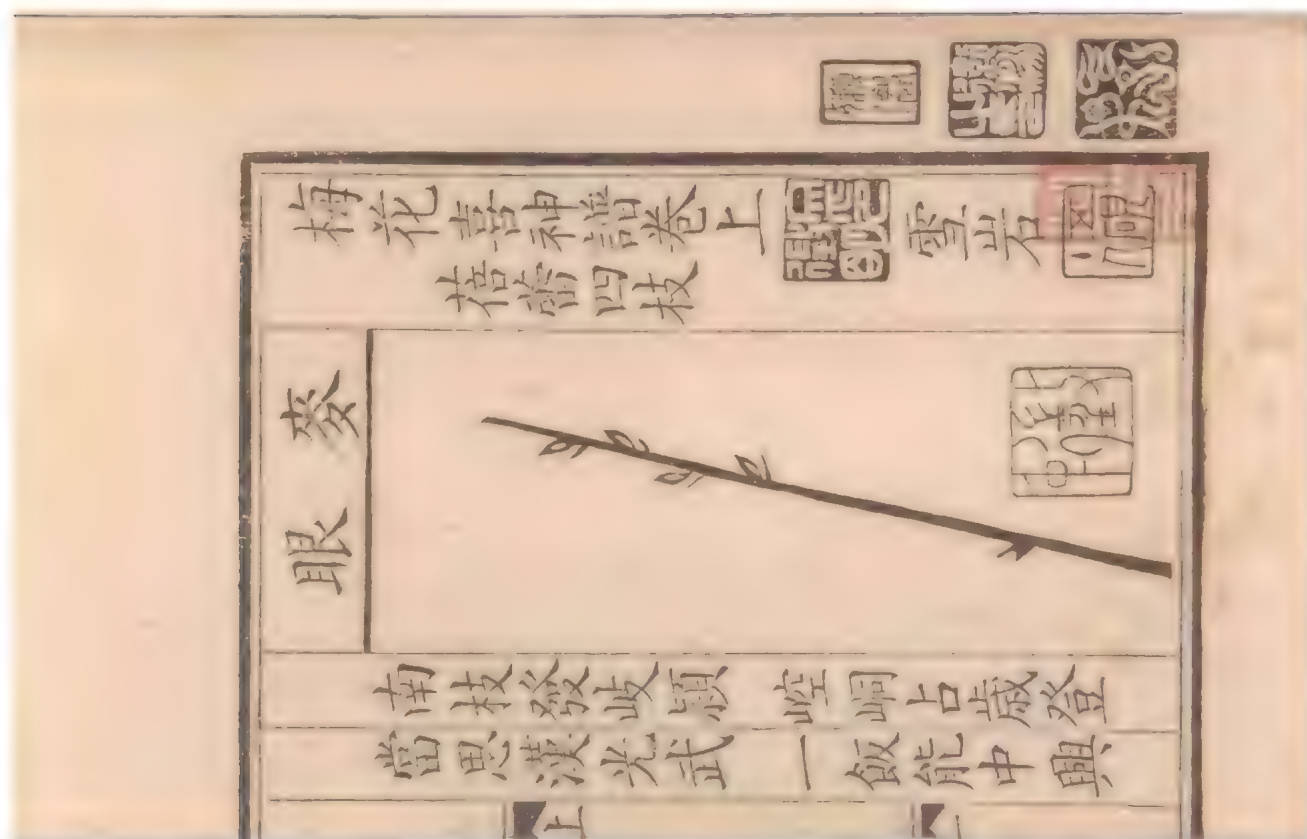 梅花喜神譜卷上 雪岩
蓓蕾四枝
麥眼
南枝發岐頴 崆峒占歲登
當思漢光武 一飯能中興
上 一